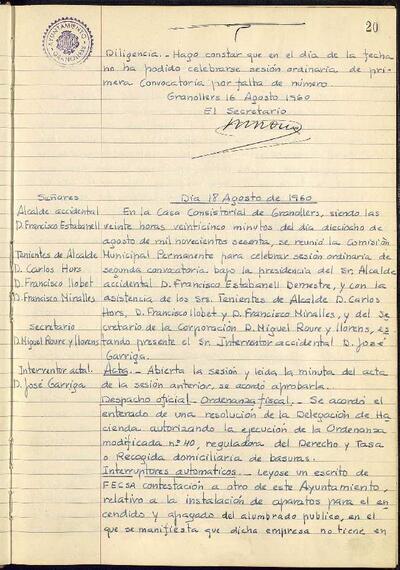 20
AYUNTAMIENTO
GRANOLLERS
Diligencia.- Hago constar que en el día de la fecha
no ha podido celebrarse sesión ordinaria de pri-
mera convocatoria por falta de número.
Granollers 16 Agosto 1960
El Secretario
Señores
Día 18 Agosto de 1960
Alcalde accidental
D. Francisco Estabanell
Tenientes de Alcalde
D. Carlos Hors
D. Francisco llobet
D. Francisco Miralles
Secretario
D. Miguel Roure y llorens
Interventor actal.
D. José Garriga
En la Casa Consistorial de Granollers, siendo las
veinte horas veinticinco minutos del día dieciocho de
agosto de mil novecientos sesenta, se reunió la Comisión
Municipal Permanente para celebrar sesión ordinaria de
segunda convocatoria bajo la presidencia del Sr. Alcalde
accidental D. Francisco Estabanell Demestre, y con la
asistencia de los Srs. Tenientes de Alcalde D. Carlos
Hors, D. Francisco llobet y D. Francisco Miralles, y del Se
cretario de la Corporación D. Miguel Roure y llorens, es
tando presente el Sr. Interventor accidental D. José
Garriga.
Acta.- Abierta la sesión y leida la minuta del acta
de la sesión anterior, se acordó aprobarla.
Despacho oficial.- Ordenanza fiscal.- Se acordó el
enterado de una resolución de la Delegación de Ha
cienda autorizando la ejecución de la Ordenanza
modificada nº 40, reguladora del Derecho y Tasa
o Recogida domiciliaria de basuras.
Interruptores automaticos.- Leyose un escrito de
FECSA contestación a otro de este Ayuntamiento,
relativo a la instalación de aparatos para el en
cendido y apagado del alumbrado publico, en el
que se manifiesta que dicha empresa no tiene en